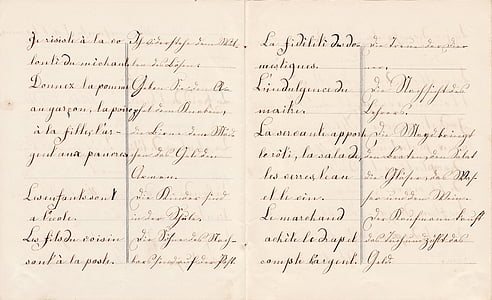 Je résiste à la vo
lonté du méchant
Donnez la pomme
au garçon, la poire
à la fille, l'ar-
gent aux pauvres
Les enfants sont
a l'école.
Les fils du voisin
sont à la poste.
Ich widerstehe dem Wil-
len des Bösen.
Geben Sie den A-
pfel dem Knaben,
die Birne dem Mäd-
chen das Geld den
Armen.
Die Kinder sind
in der Schule.
Die Söhne des Nach-
bars sind auf der Post.
La fidélité du do-
mestique.
L'indulgence du
maître.
La servante apporte
le rôti, la salade,
les verres, l'eau
et le vin.
Le marchand
achète le drap et
compte l'argent.
Die Treue des Die-
ners.
Die Nachsicht des
Lehrers.
Die Magd bringt
den Braten, den Salat
die Gläser, das Was-
ser und den Wein.
Der Kaufmann kauft
das Tuch und zählt das
Geld